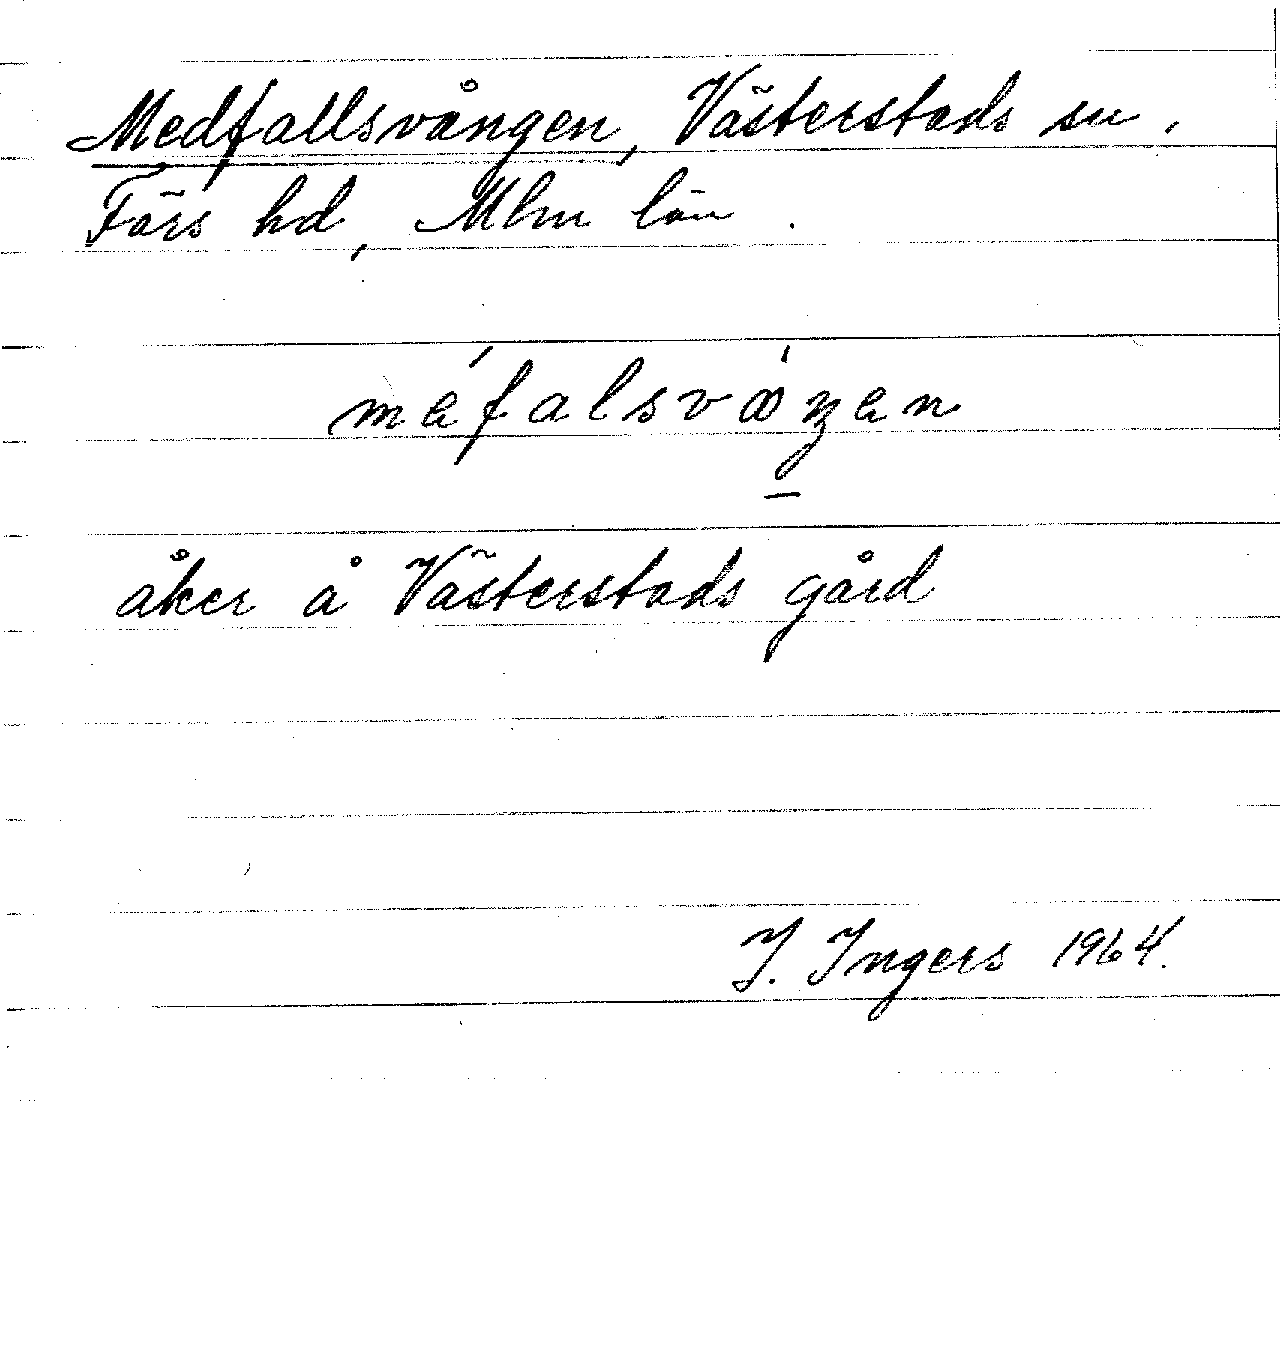 Medfallsvången, Västerstads sn.
Färs hd, Mlm län.
åker å Västerstads gård
I. Ingers 1964.